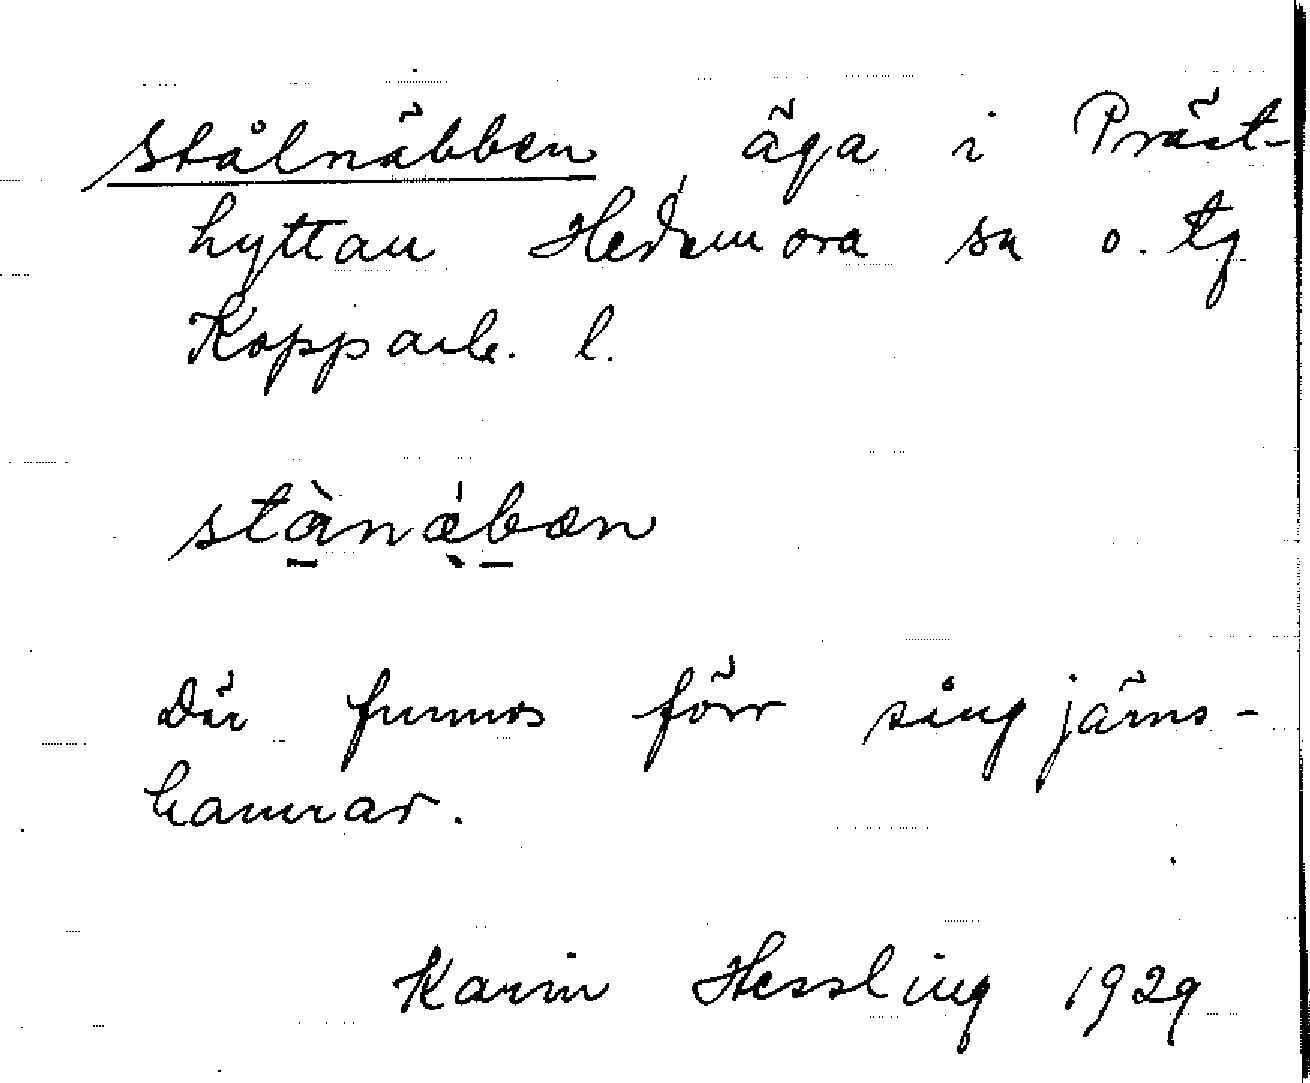 Stålnäbben äga i Präst-
hyttan Hedemora sn o. tg
Kopparb. l.
stànǽbæn
Där funnos förr
hamrar.
Karin Hessling 1929